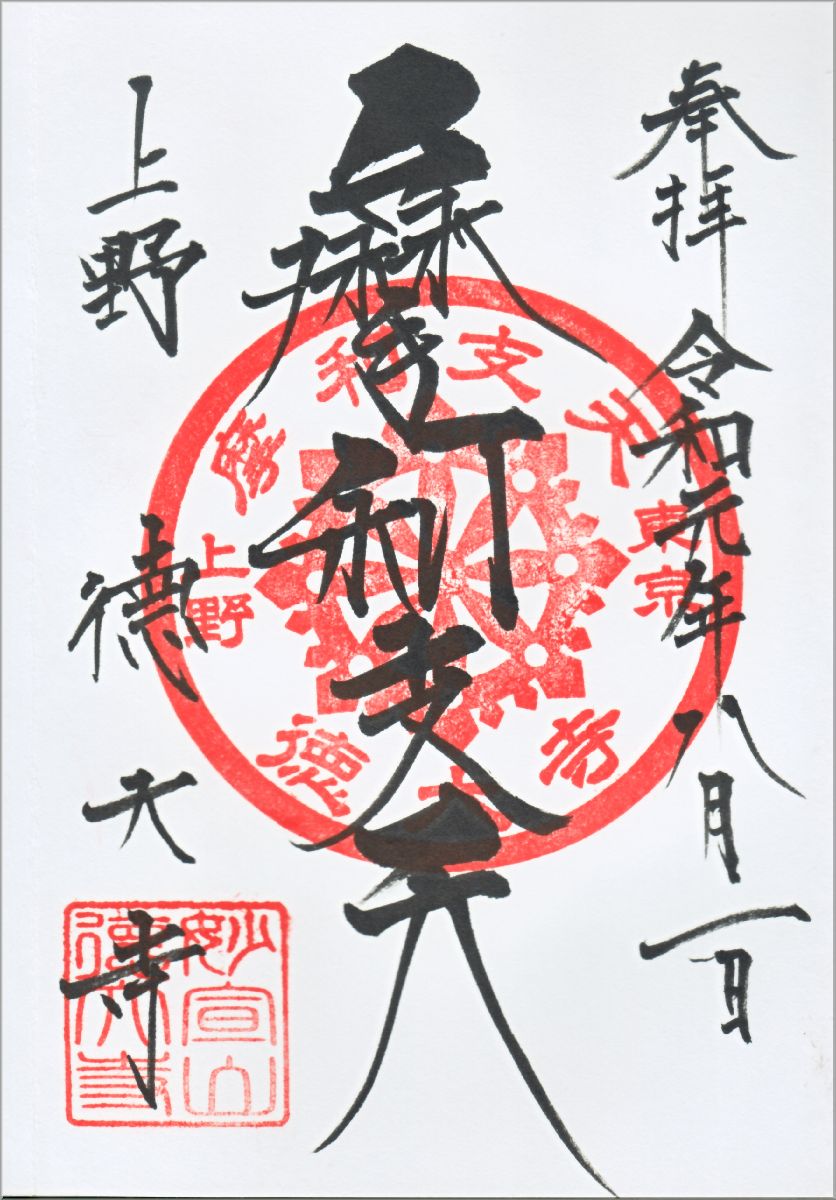 奉拝 令和元年八月一日
摩利支天
上野 徳大寺
摩利支天
東京
上野
徳大寺
妙宣山
徳大寺